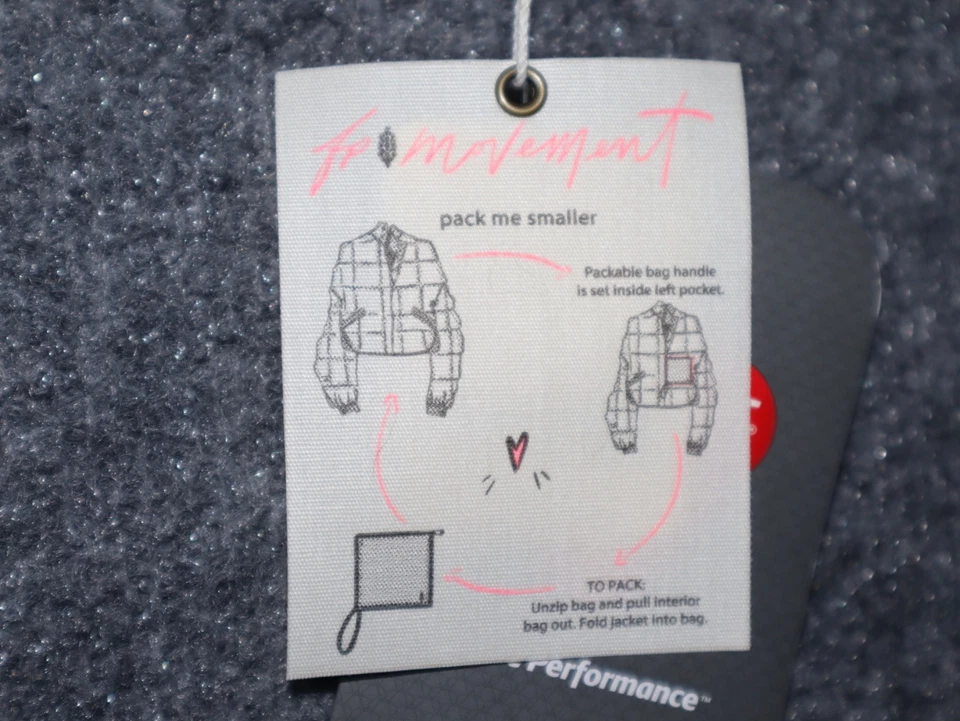 fp movement
pack me smaller
Packable bag handle
is set inside left pocket.
TO PACK:
Unzip bag and pull interior
bag out. Fold jacket into bag.
Performance™